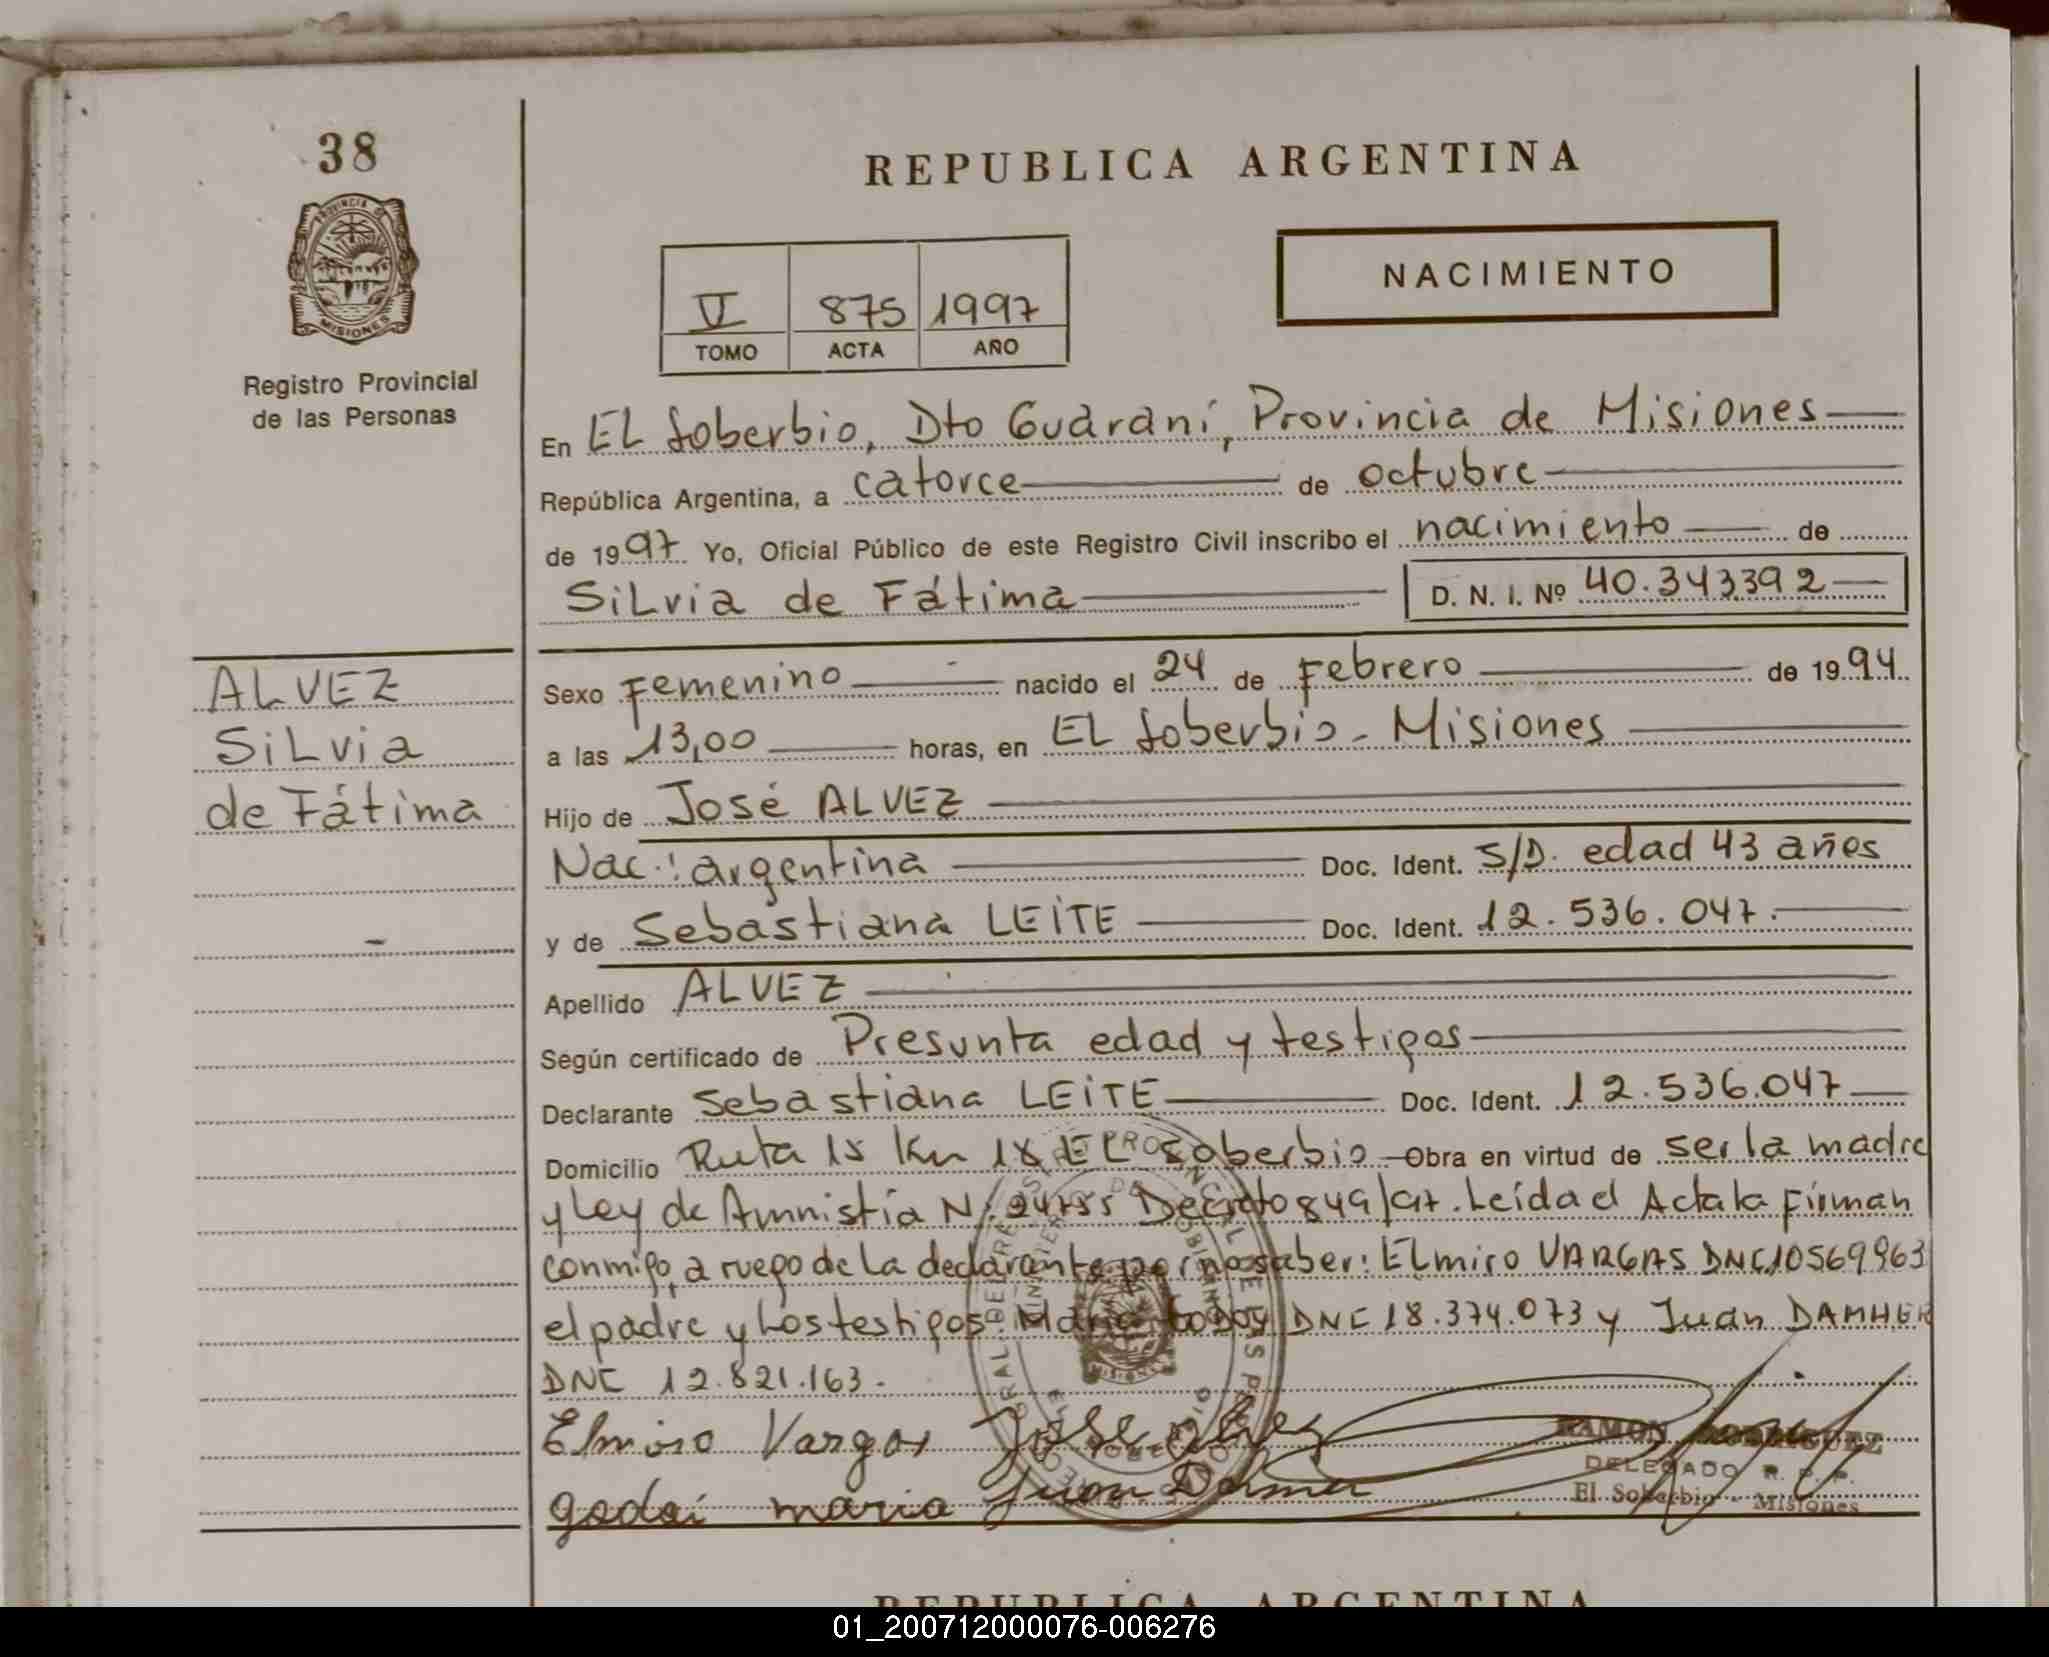 38
REPUBLICA ARGENTINA
PROVINCIA DE
MISIONES
Registro Provincial
de las Personas
NACIMIENTO
V 875 1997
TOMO ACTA AÑO
En EL Soberbio, Dto Guaraní, Provincia de Misiones
República Argentina, a catorce de octubre
de 1997 Yo, Oficial Público de este Registro Civil inscribo el nacimiento de
Silvia de Fátima D. N. I. Nº 40.343.392
ALVEZ
Silvia
de Fátima
Sexo Femenino nacido el 24 de Febrero de 1994
a las 13,00 horas, en EL Soberbio - Misiones
Hijo de José ALVEZ
Nac.: argentina Doc. Ident. S/D. edad 43 años
y de Sebastiana LEITE Doc. Ident. 12.536.047.
Apellido ALVEZ
Según certificado de Presunta edad y testigos
Declarante Sebastiana LEITE Doc. Ident. 12.536.047
Domicilio Ruta 15 Km 18 EL Soberbio Obra en virtud de ser la madre
y Ley de Amnistía N: 24755 Decreto 849/97. Leída el Acta la Firman
conmigo, a ruego de la declarante por no saber: ELmiro VARGAS DNI 10569963
el padre y Los testigos: María Godoy DNI 18.374.073 y Juan DAMHER
DNI 12.821.163.
Elmiro Vargas Jose alvez
godoi maria Juan Damer
RAMON RODRIGUEZ
DELEGADO R. P. P.
El Soberbio - Misiones
REPUBLICA ARGENTINA
01_200712000076-006276